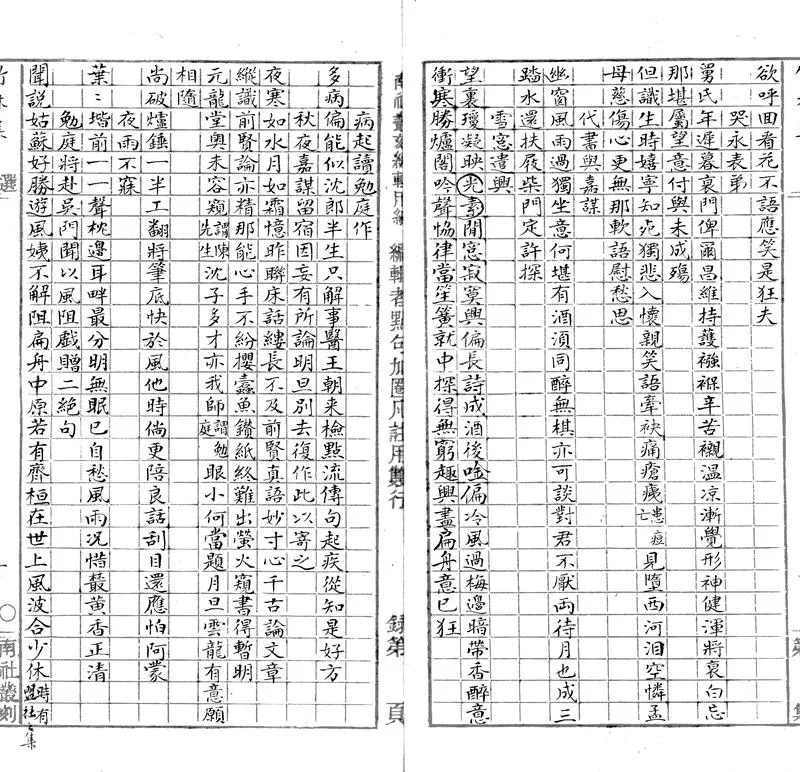 欲呼回看花不語應笑是狂夫
哭永表弟
舅氏年遲暮哀門俾爾昌維持護襁褓辛苦襯溫凉漸覺形神健渾將衰白忘
那堪屬望意付與未成殤
但識生時嬉寧知死獨悲入懷親笑語牽袂痛瘡痍患痘亡見墮西河泪空憐孟
母慈傷心更無那軟語慰愁思
代書與嘉謀
幽窗風雨過獨坐意何堪有酒須同醉無棋亦可談對君不厭兩待月也成三
踏水還扶屐柴門定許探
雪窓遣興
望裏瓊凝映光素閒窓寂寞興偏長詩成酒後唫偏冷風過梅邊暗帶香醉意
衝寒勝爐閣吟聲恊律當笙簧就中探得無窮趣興盡扁舟意已狂
南社叢刻編輯用紙 編輯者點句加圈凡註用雙行 錄第 頁
病起讀勉庭作
多病偏能似沈郎半生只解事醫王朝来檢點流傳句起疾從知是好方
秋夜嘉謀留宿因妄有所論明旦別去復作此以寄之
夜寒如水月如霜憶昨聯床話縷長不及前賢真語妙寸心千古論文章
縱識前賢論亦精那能心手不紛攖蠹魚鑽紙終難出螢火窺書得暫明
元龍堂奥未容窺謂陳先生沈子多才亦我師謂勉庭眼小何當題月旦雲龍有意願
相隨
尚破爐錘一半工翻將筆底快於風他時倘更陪良話刮目還應怕阿蒙
夜雨不寐
葉〻堦前一一聲枕邊耳畔最分明無眠已自愁風雨况惜叢黄香正清
勉庭將赴吳門聞以風阻戲贈二絶句
聞說姑蘇好勝遊風姨不解阻扁舟中原若有齊桓在世上風波合少休時有盟社〻集
選
南社叢刻